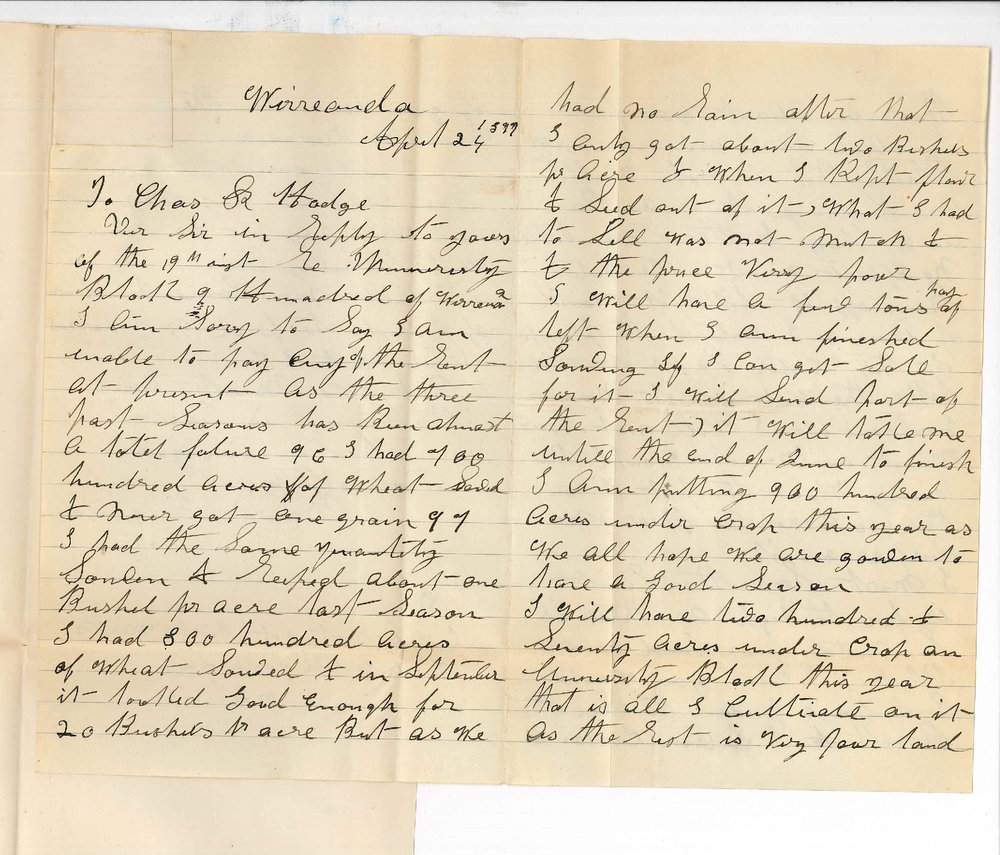 Wirreanda
April 24 1899
To Chas R Hodge
Der Sir in Reply to yours
of the 19th inst Re Unineristy
Block 9 Hunadred of Wirreanda
I am Sorry to Say I am
unable to pay any of the Rent
at present as the three
past Seasons has Been almost
a totel falure 96 I had 700
hundred acres of Wheat Sowed
& Never got one grain 97
I had the Same quantety
Sowden & Reeped about one
Bushel pr acre last Season
I had 800 hundred acres
of Wheat Sowded & in September
it looked Good Enough for
20 Bushels pr acre But as We
had no Rain after that
I only got about two Bushels
pr Acre & When I Kept flour
& Seed out of it, What I had
to Sell was not Mutch &
& the price Verry pour
I Will have a few tons of hay
left When I am finished
Sowding If I Can get Sale
for it I Will Send Part of
the Rent, it Will take me
untill the end of June to finish
I Am putting 900 hundred
Acres under Crop this year as
We all hope We are gowden to
have a Good Season
I Will have two hundred &
Seventy Acres under Crop on
University Block this year
that is all I Cultivate on it
As the Rest is Very Pour land